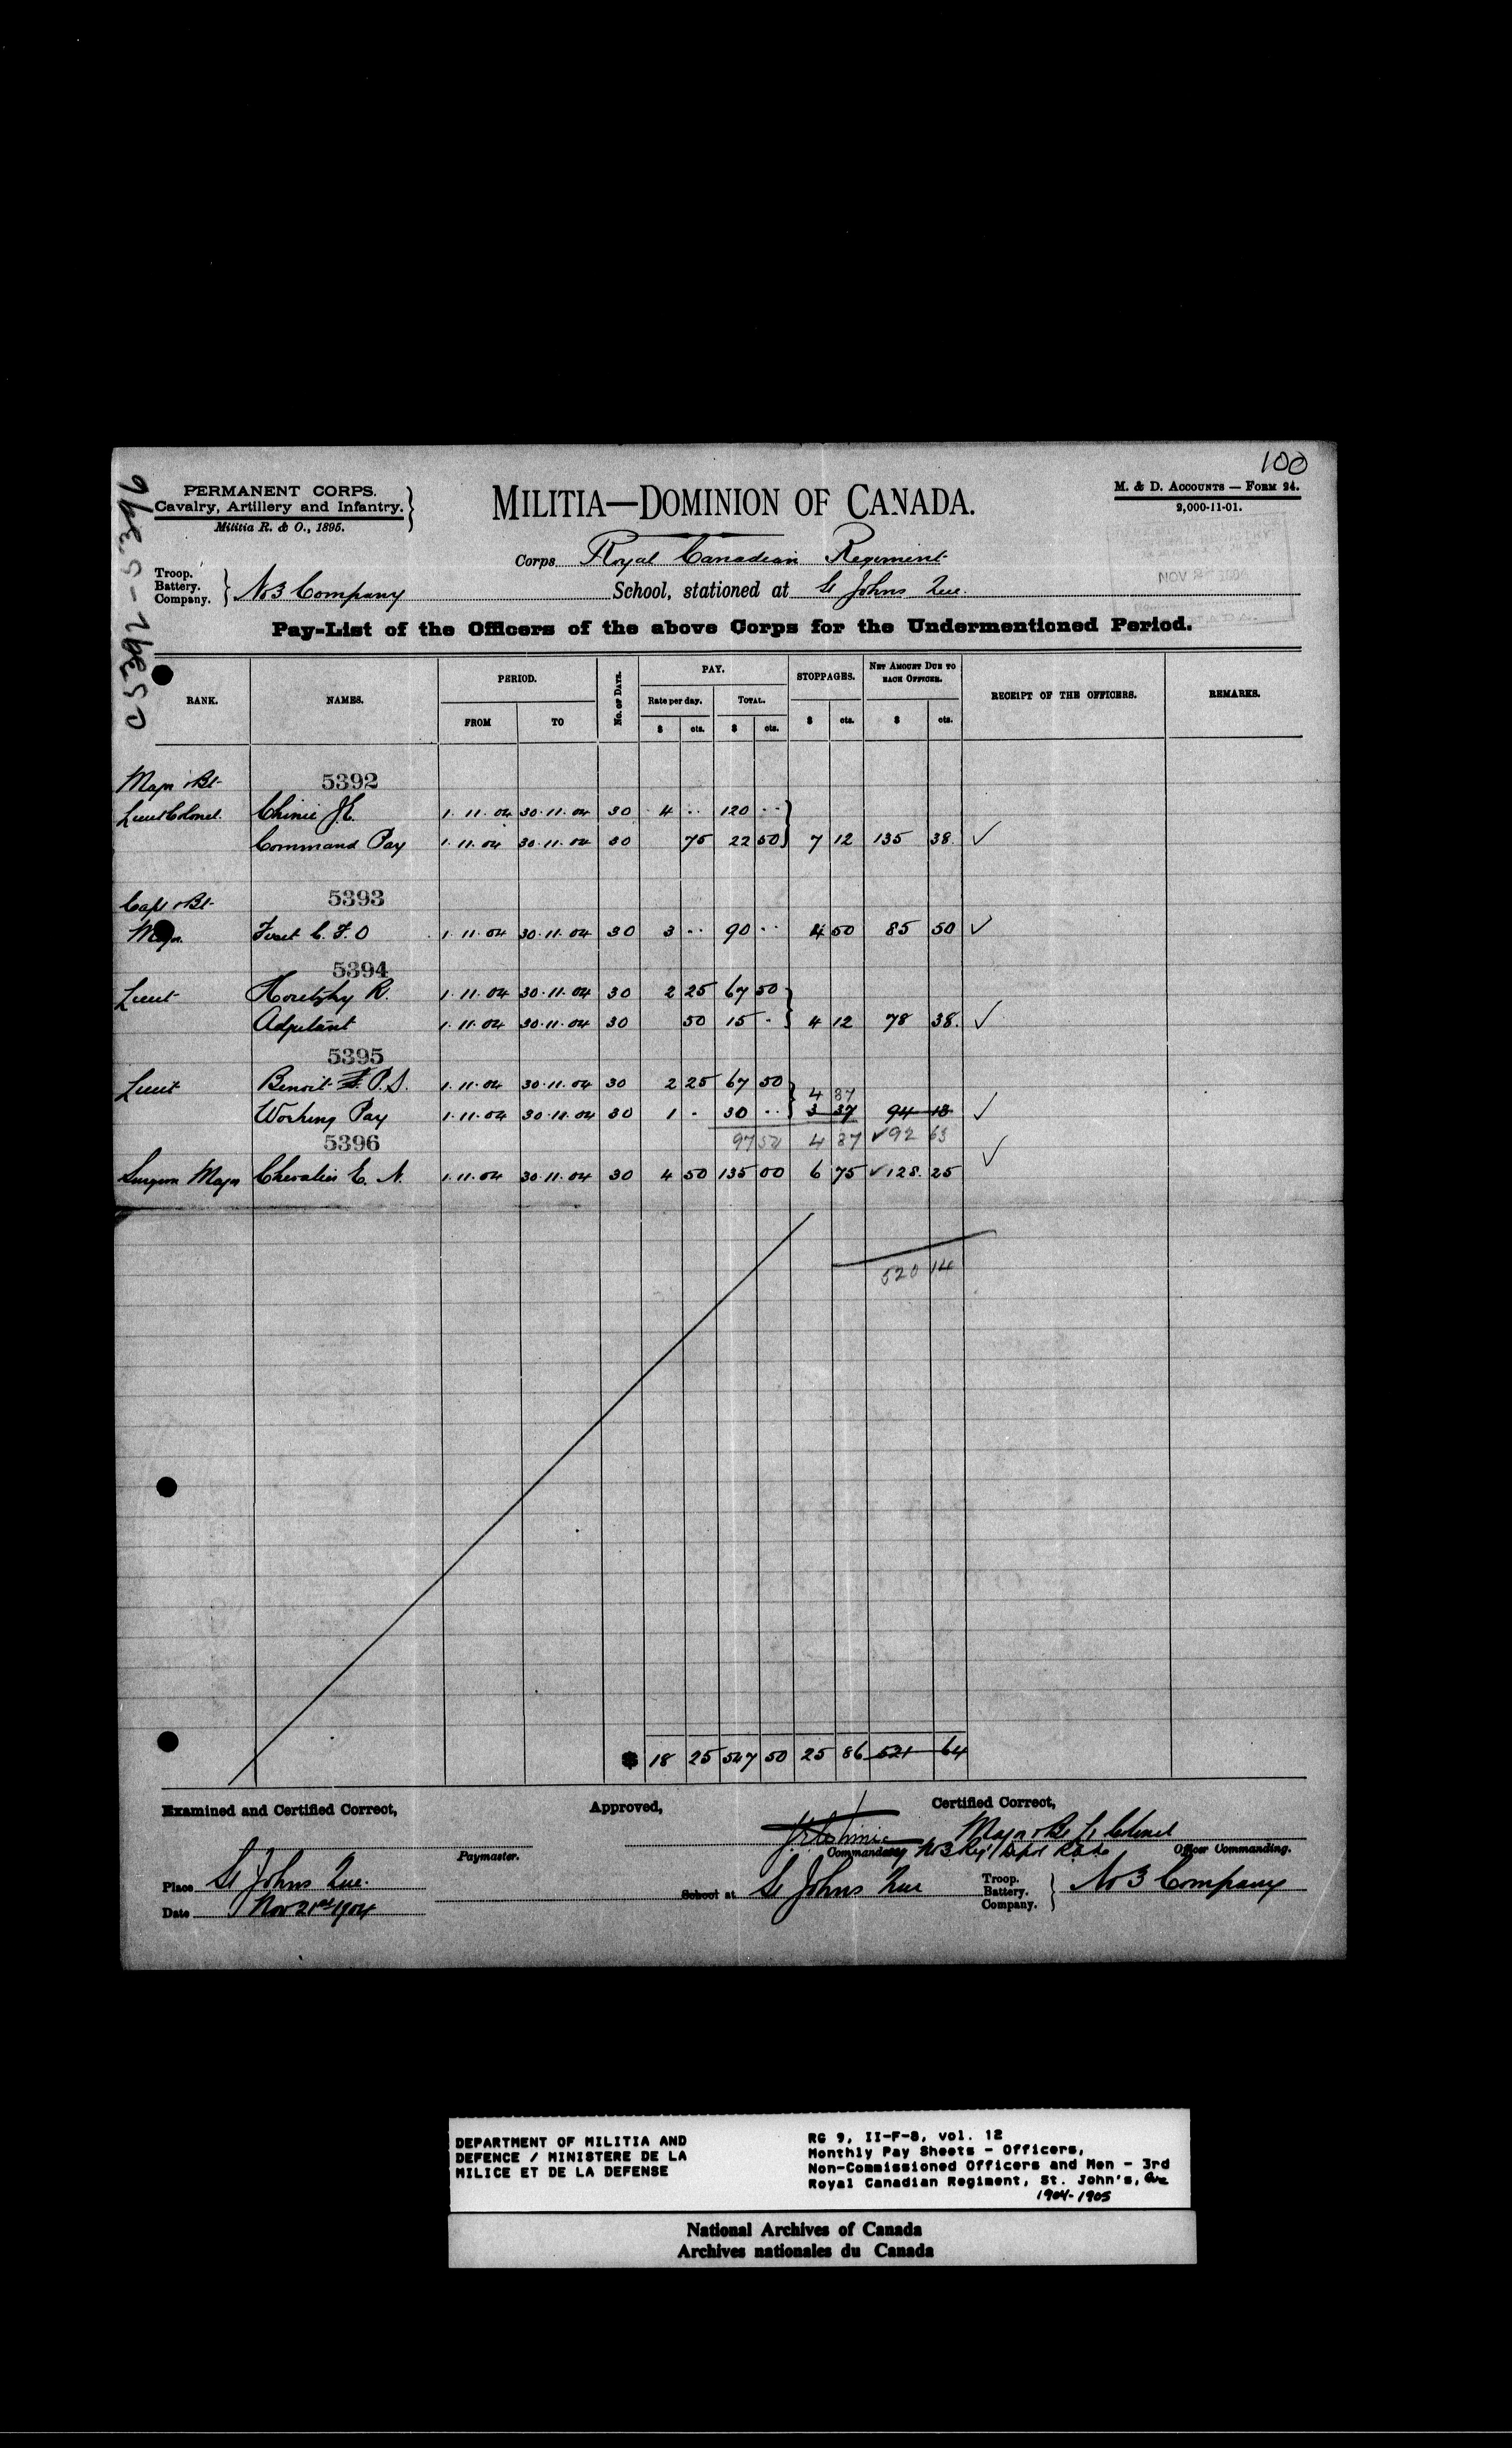 100
C 5392-5396
PERMANENT CORPS.
Cavalry, Artillery and Infantry.
Militia R. & O., 1895.
MILITIA—DOMINION OF CANADA.
M. & D. ACCOUNTS — FORM 24.
2,000-11-01.
Corps Royal Canadian Regiment
NOV
Troop.
Battery.
Company. No 3 Company School, stationed at St Johns Que.
Pay-List of the Officers of the above Corps for the Undermentioned Period.
RANK. NAMES. PERIOD. FROM TO No. of Days. PAY. Rate per day. $ cts. TOTAL. $ cts. STOPPAGES. $ cts. NET AMOUNT DUE TO EACH OFFICER. $ cts. RECEIPT OF THE OFFICERS. REMARKS.
Major & Bt- 5392
Lieut Colonel. Chinic J.E. 1.11.04 30.11.04 30 4 .. 120 ..
Command Pay 1.11.04 30.11.04 30 75 22 50 7 12 135 38 ✓
Capt & Bt- 5393
Major Fiset C. F. O 1.11.04 30.11.04 30 3 .. 90 .. 4 50 85 50 ✓
5394
Lieut Horetzky R. 1.11.04 30.11.04 30 2 25 67 50
Adjutant 1.11.04 30.11.04 30 50 15 . 4 12 78 38. ✓
5395
Lieut Benoit P.S. 1.11.04 30.11.04 30 2 25 67 50 4 87
Working Pay 1.11.04 30.11.04 30 1 . 30 .. 3 37 94 13 ✓
5396 97 50 4 87 ✓92 63 ✓
Surgeon Major Chevalier E. N. 1.11.04 30.11.04 30 4 50 135 00 6 75 ✓128.25
520 14
$ 18 25 547 50 25 86 521 64
Examined and Certified Correct, Approved, Certified Correct,
J E Chinic Major & Bt Lt Colonel
Paymaster. Commanding No 3 Regl Depot Officer Commanding.
Place St Johns Que. School at St Johns Que Troop.
Battery.
Company. No 3 Company
Date Nov 21st 1904
DEPARTMENT OF MILITIA AND
DEFENCE / MINISTERE DE LA
MILICE ET DE LA DEFENSE
RG 9, II-F-8, vol. 12
Monthly Pay Sheets - Officers,
Non-Commissioned Officers and Men - 3rd
Royal Canadian Regiment, St. John's, Que
1904-1905
National Archives of Canada
Archives nationales du Canada